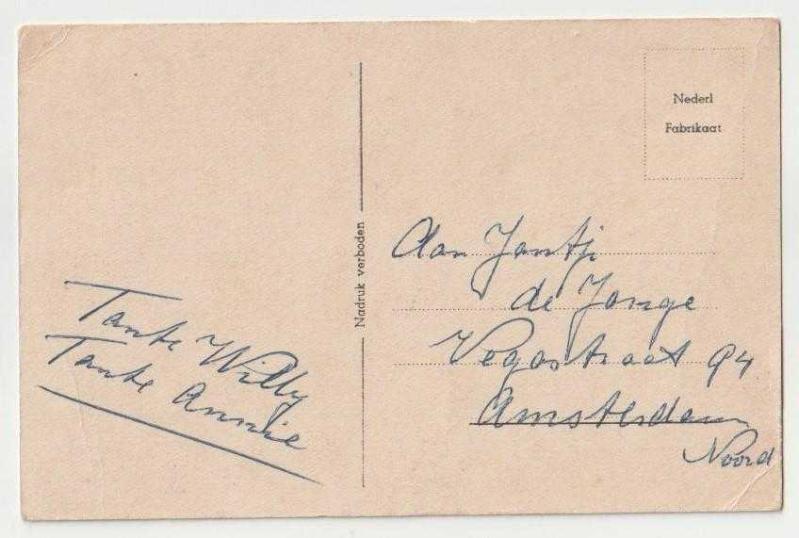 Nederl
Fabrikaat
Nadruk verboden
Aan Jantji
de Jonge
Vegastraat 94
Amsterdam
Noord
Tante Willy
Tante Annie